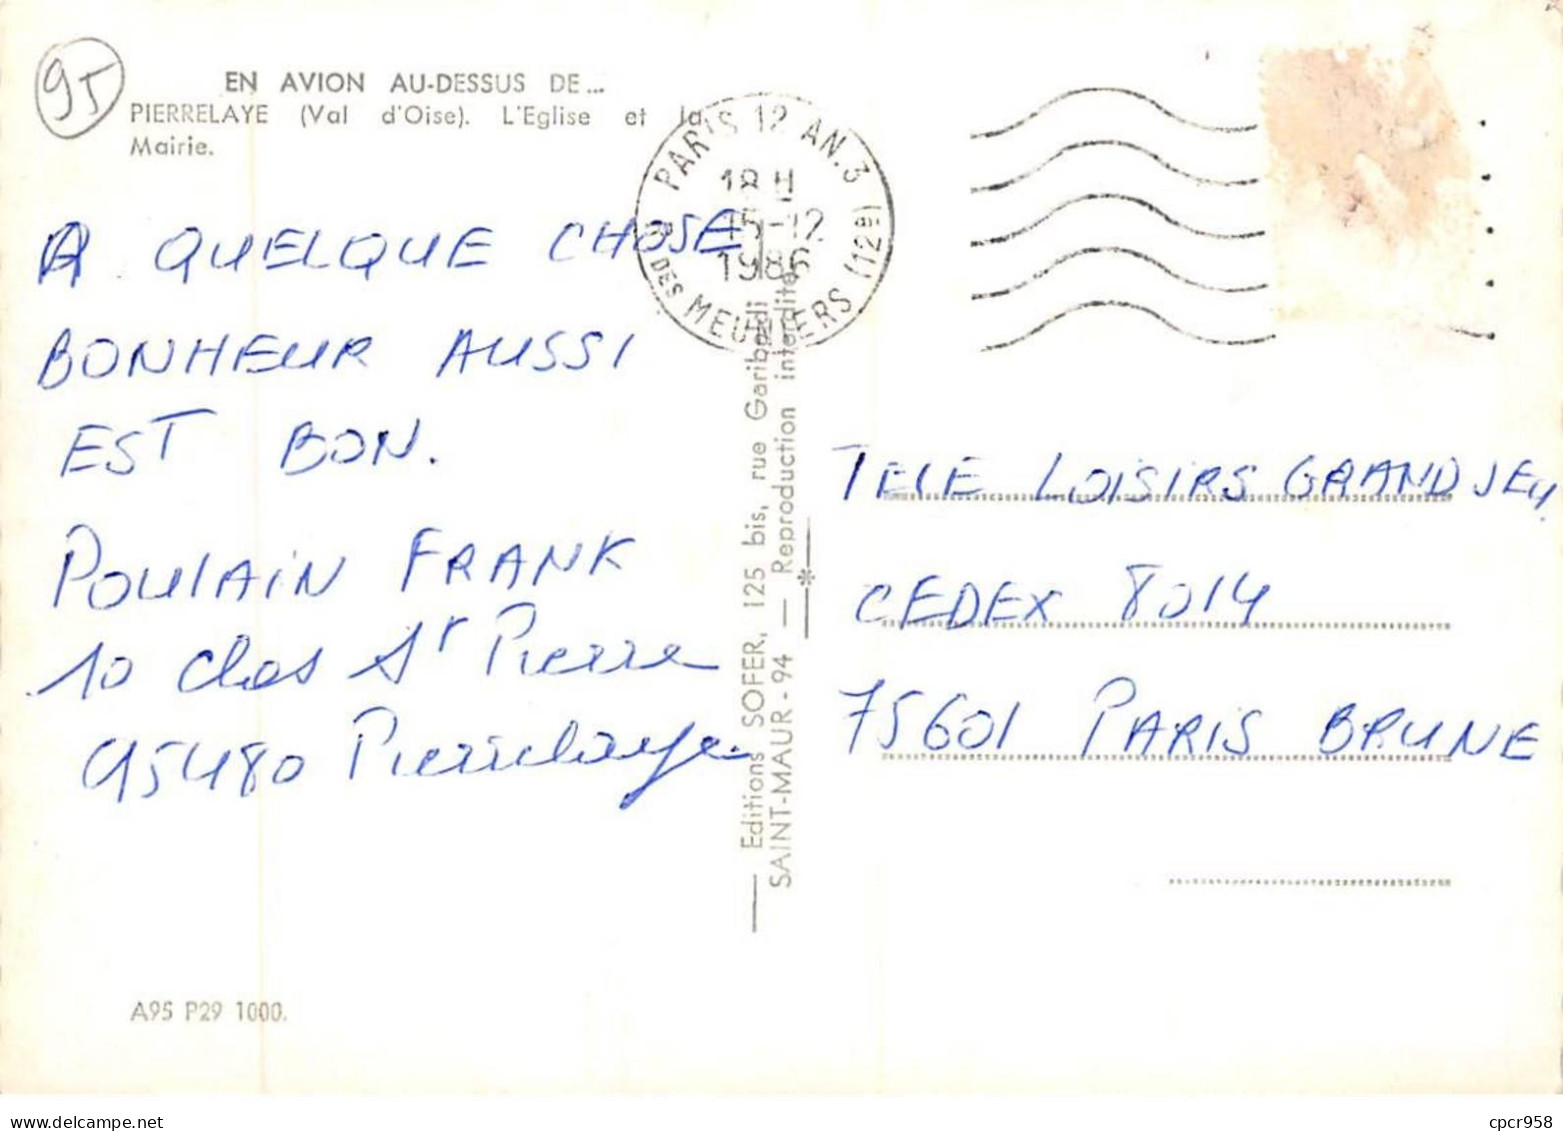 95
EN AVION AU-DESSUS DE...
PIERRELAYE (Val d'Oise). L'Eglise et la
Mairie.
A QUELQUE CHOSE
BONHEUR AUSSI
EST BON.
POULAIN FRANK
10 clos St Pierre
95480 Pierrelaye
A95 P29 1000.
PARIS 12 AN. 3
18 H
15-12
1986
R. DES MEUNIERS (12e)
Editions SOFER, 125 bis, rue Garibaldi
SAINT-MAUR - 94 — Reproduction interdite
TELE LOISIRS GRAND JEU
CEDEX 8014
75601 PARIS BRUNE
www.delcampe.net
cpcr958